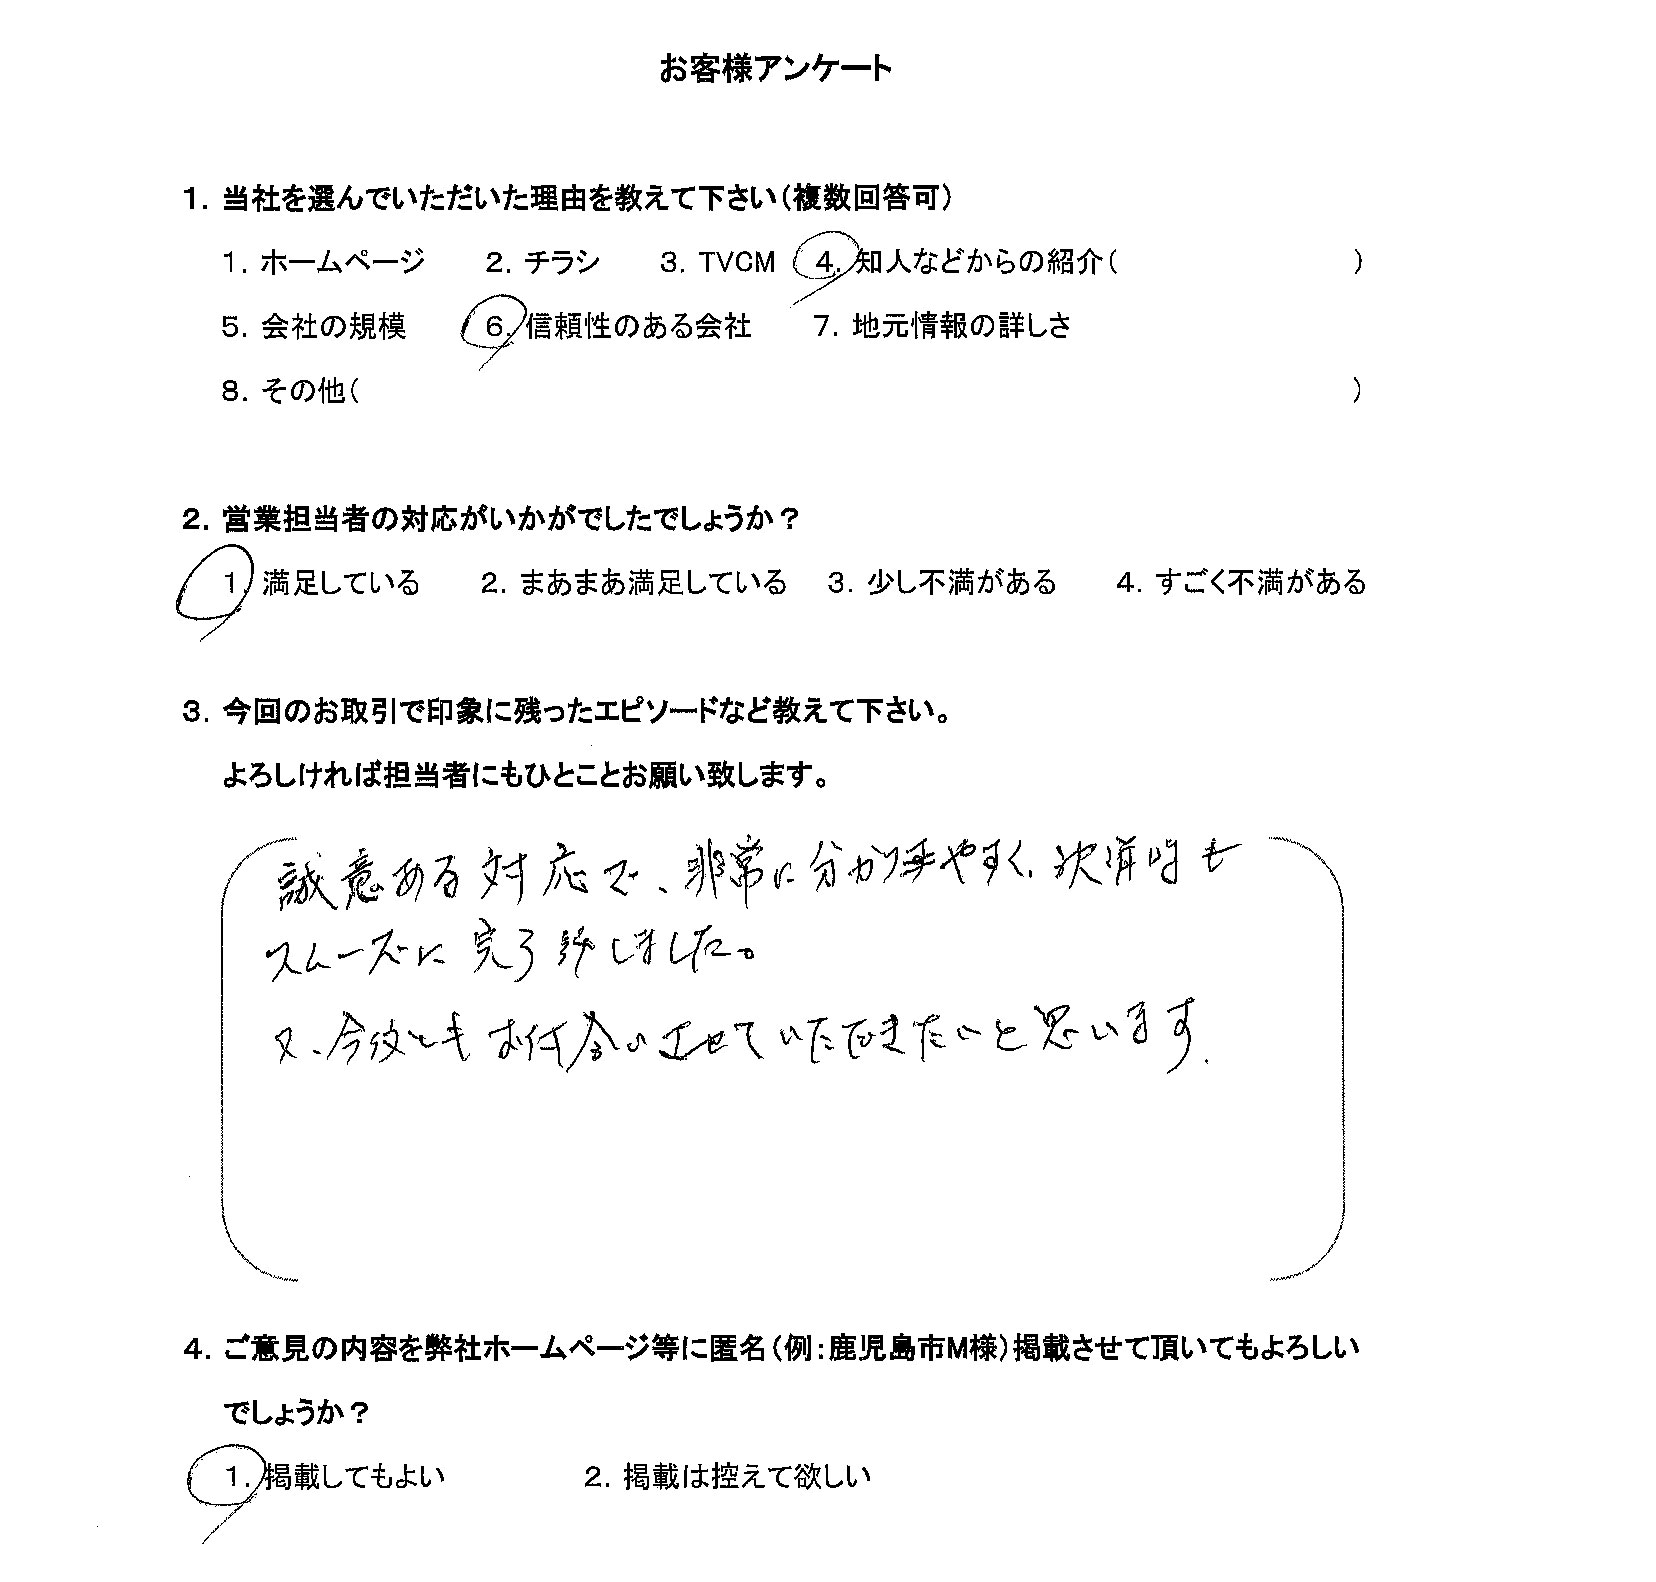 お客様アンケート
1. 当社を選んでいただいた理由を教えて下さい(複数回答可)
1. ホームページ 2. チラシ 3. TVCM 4. 知人などからの紹介( )
5. 会社の規模 6. 信頼性のある会社 7. 地元情報の詳しさ
8. その他( )
2. 営業担当者の対応がいかがでしたでしょうか?
1. 満足している 2. まあまあ満足している 3. 少し不満がある 4. すごく不満がある
3. 今回のお取引で印象に残ったエピソードなど教えて下さい。
よろしければ担当者にもひとことお願い致します。
誠意ある対応で、非常に分かりやすく、決済時も
スムーズに完了致しました。
又、今後ともお付合いさせていただきたいと思います.
4. ご意見の内容を弊社ホームページ等に匿名(例:鹿児島市M様)掲載させて頂いてもよろしい
でしょうか?
1. 掲載してもよい 2. 掲載は控えて欲しい